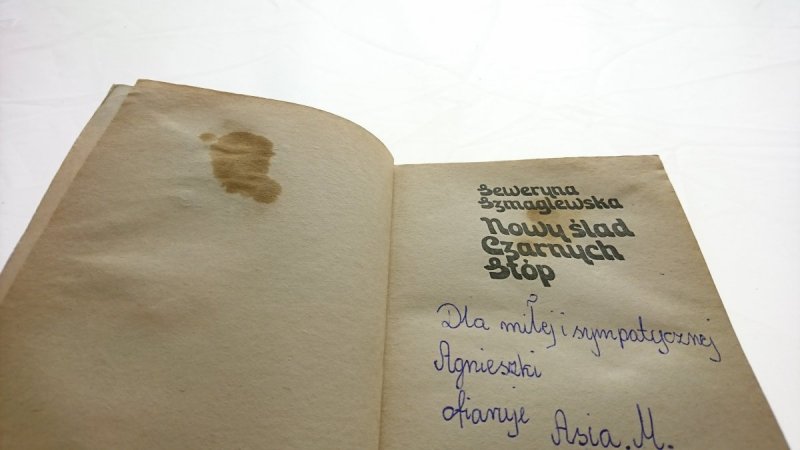 Seweryna
Szmaglewska
Nowy ślad
Czarnych
Stóp
Dla miłej i sympatycznej
Agnieszki
ofiaruje Asia. M.